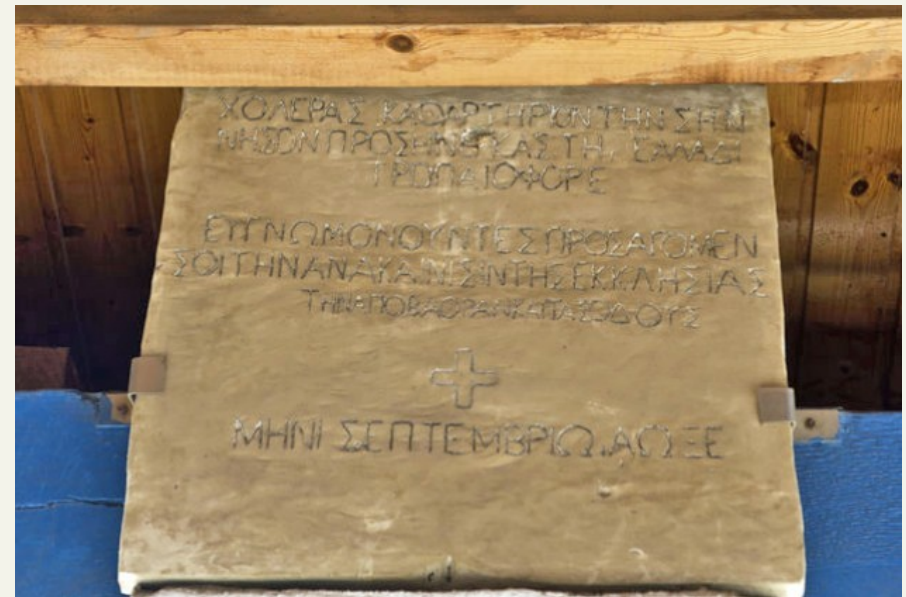 ΧΟΛΕΡΑΣ ΚΑΘΑΡΤΗΡΙΟΝ ΤΗΝ ΣΗΝ
ΝΗΣΟΝ ΠΡΟΣΗΝΕΓΚΑΣ ΤΗ
ΤΡΟΠΑΙΟΦΟΡΕ
ΕΥΓΝΩΜΟΝΟΥΝΤΕΣ ΠΡΟΣΑΓΟΜΕΝ
ΣΟΙ ΤΗΝ ΑΝΑΚΑΙΝΙΣΙΝ ΤΗΣ ΕΚΚΛΗΣΙΑΣ
ΤΗΝ
ΜΗΝΙ ΣΕΠΤΕΜΒΡΙΩ. ΑΩΞΕ